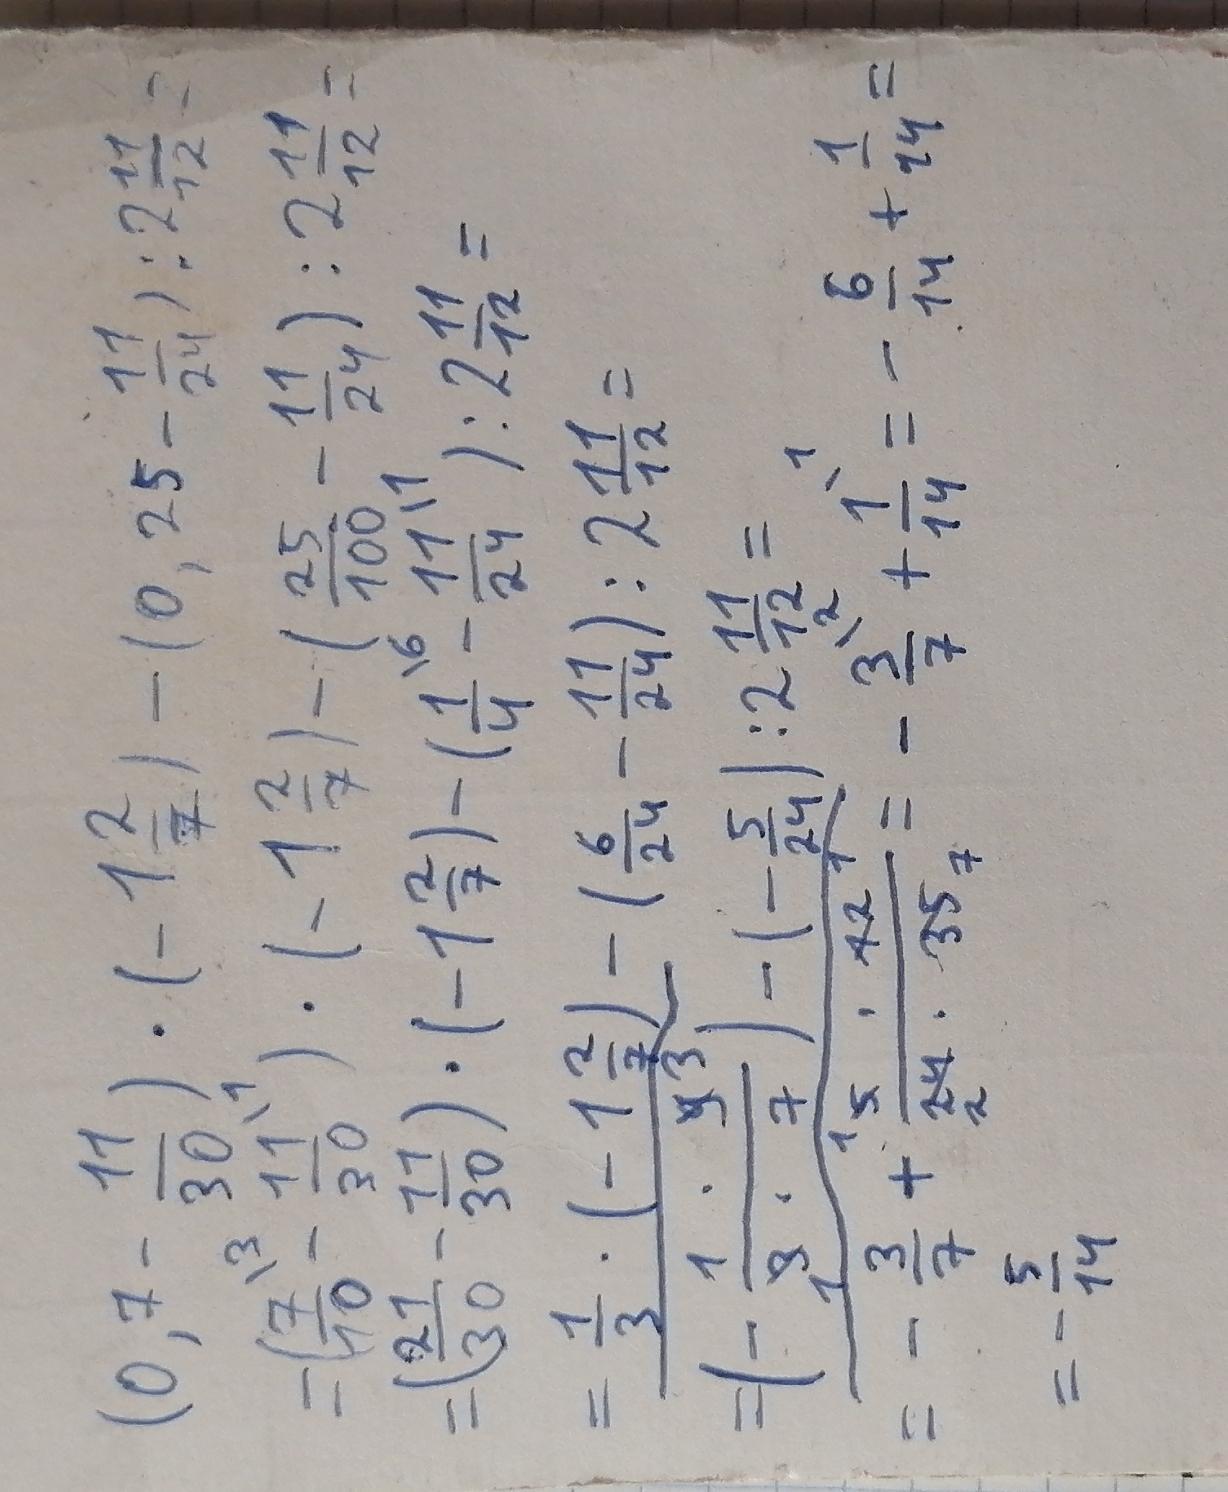 (0,7 - 11/30) · (-1 2/7) - (0,25 - 11/24) : 2 11/12 =
= (7/10 \3 - 11/30 \1) · (-1 2/7) - (25/100 - 11/24) : 2 11/12 =
= (21/30 - 11/30) · (-1 2/7) - (1/4 \6 - 11/24 \1) : 2 11/12 =
= 1/3 · (-1 2/7) - (6/24 - 11/24) : 2 11/12 =
= (- 1 · 9 3 / 3 1 · 7) - (- 5/24) : 2 11/12 =
= - 3/7 + 1 5 · 12 1 / 24 2 · 35 7 = - 3/7 \2 + 1/14 \1 = - 6/14 + 1/24 =
= - 5/14